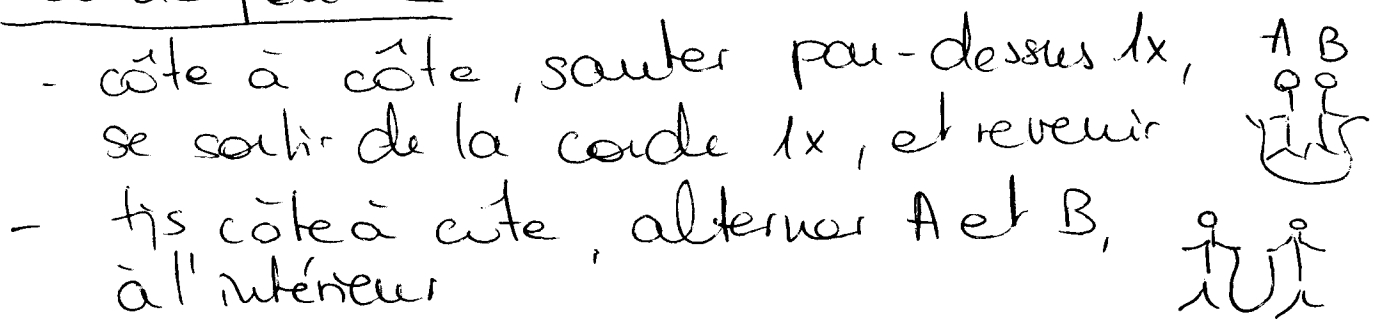 - côte à côte, sauter par-dessus 1x, A B
se sortir de la corde 1x, et revenir
- tjs côte à côte, alterner A et B,
à l'intérieur